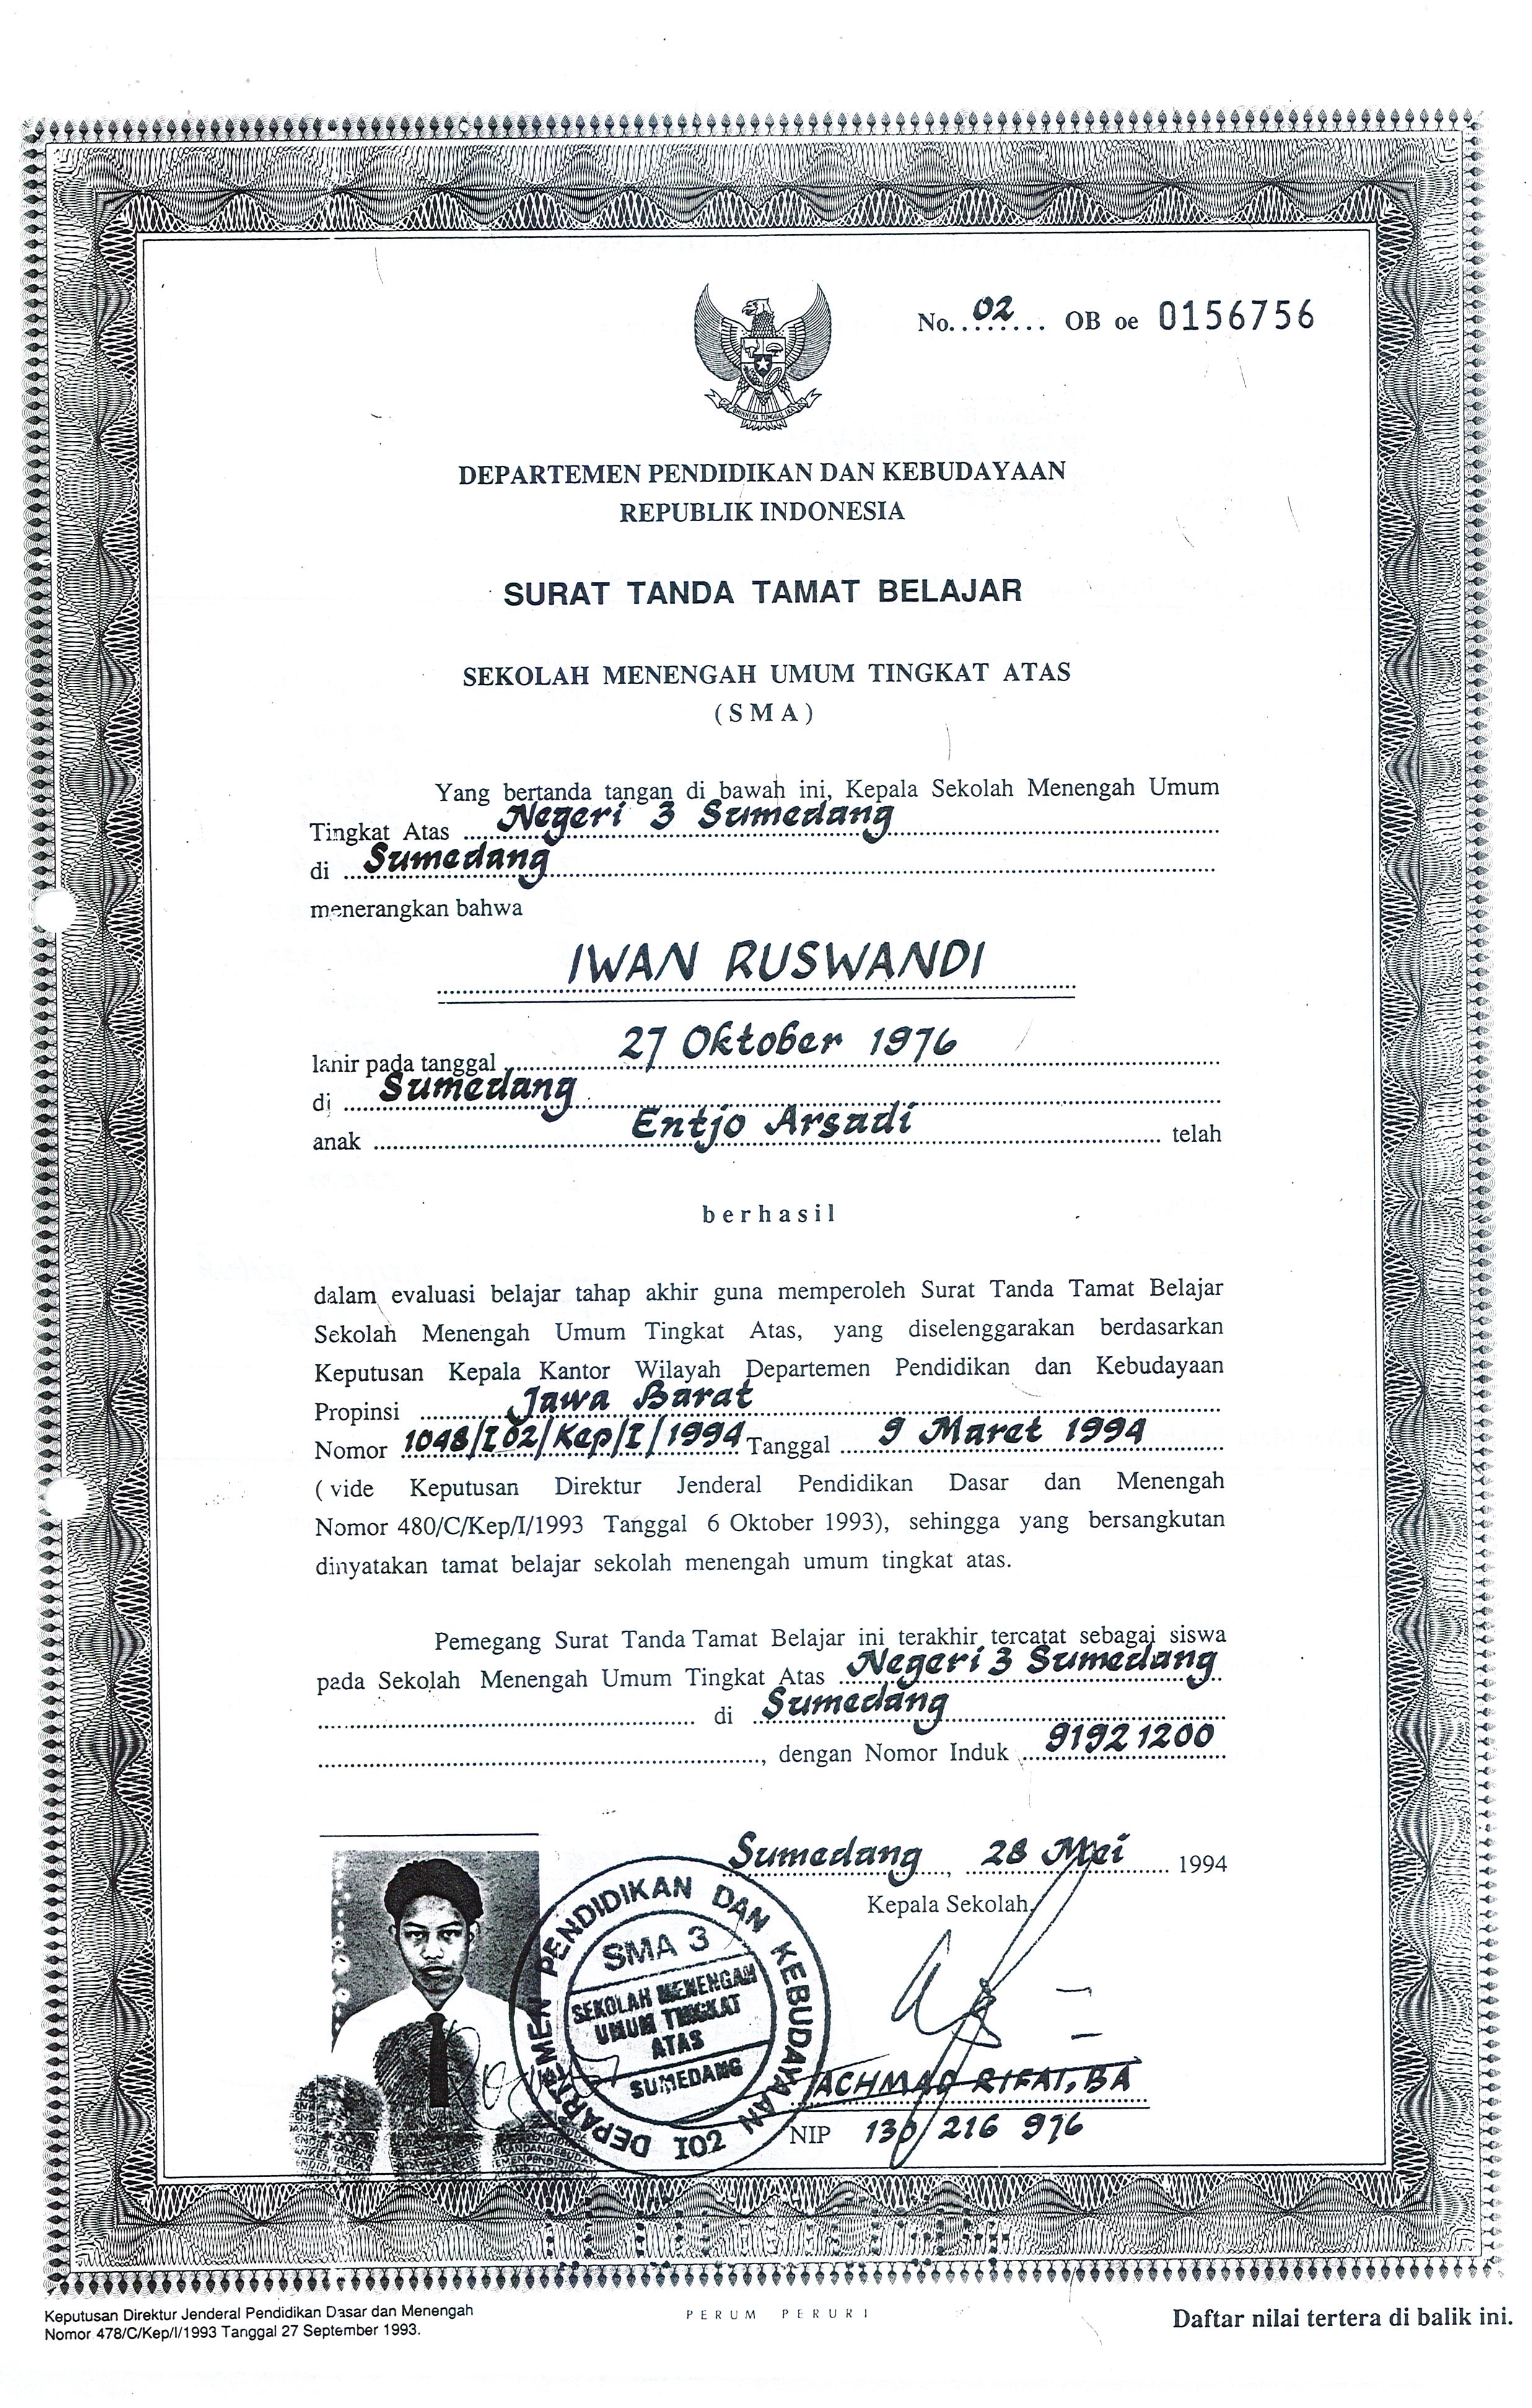 No. 02 OB oe 0156756
BHINNEKA TUNGGAL IKA
DEPARTEMEN PENDIDIKAN DAN KEBUDAYAAN
REPUBLIK INDONESIA
SURAT TANDA TAMAT BELAJAR
SEKOLAH MENENGAH UMUM TINGKAT ATAS
(SMA)
Yang bertanda tangan di bawah ini, Kepala Sekolah Menengah Umum
Tingkat Atas Negeri 3 Sumedang
di Sumedang
menerangkan bahwa
IWAN RUSWANDI
lahir pada tanggal 27 Oktober 1976
di Sumedang
anak Entjo Arsadi telah
berhasil
dalam evaluasi belajar tahap akhir guna memperoleh Surat Tanda Tamat Belajar
Sekolah Menengah Umum Tingkat Atas, yang diselenggarakan berdasarkan
Keputusan Kepala Kantor Wilayah Departemen Pendidikan dan Kebudayaan
Propinsi Jawa Barat
Nomor 1048/I02/Kep/I/1994 Tanggal 9 Maret 1994
(vide Keputusan Direktur Jenderal Pendidikan Dasar dan Menengah
Nomor 480/C/Kep/I/1993 Tanggal 6 Oktober 1993), sehingga yang bersangkutan
dinyatakan tamat belajar sekolah menengah umum tingkat atas.
Pemegang Surat Tanda Tamat Belajar ini terakhir tercatat sebagai siswa
pada Sekolah Menengah Umum Tingkat Atas Negeri 3 Sumedang
di Sumedang
, dengan Nomor Induk 91921200
Sumedang, 28 Mei 1994
Kepala Sekolah,
DEPARTEMEN PENDIDIKAN DAN KEBUDAYAAN
SMA 3
SEKOLAH MENENGAH
UMUM TINGKAT
ATAS
SUMEDANG
I02
ACHMAD RIFAI, BA
NIP 130 216 976
Keputusan Direktur Jenderal Pendidikan Dasar dan Menengah
Nomor 478/C/Kep/I/1993 Tanggal 27 September 1993.
PERUM PERURI
Daftar nilai tertera di balik ini.